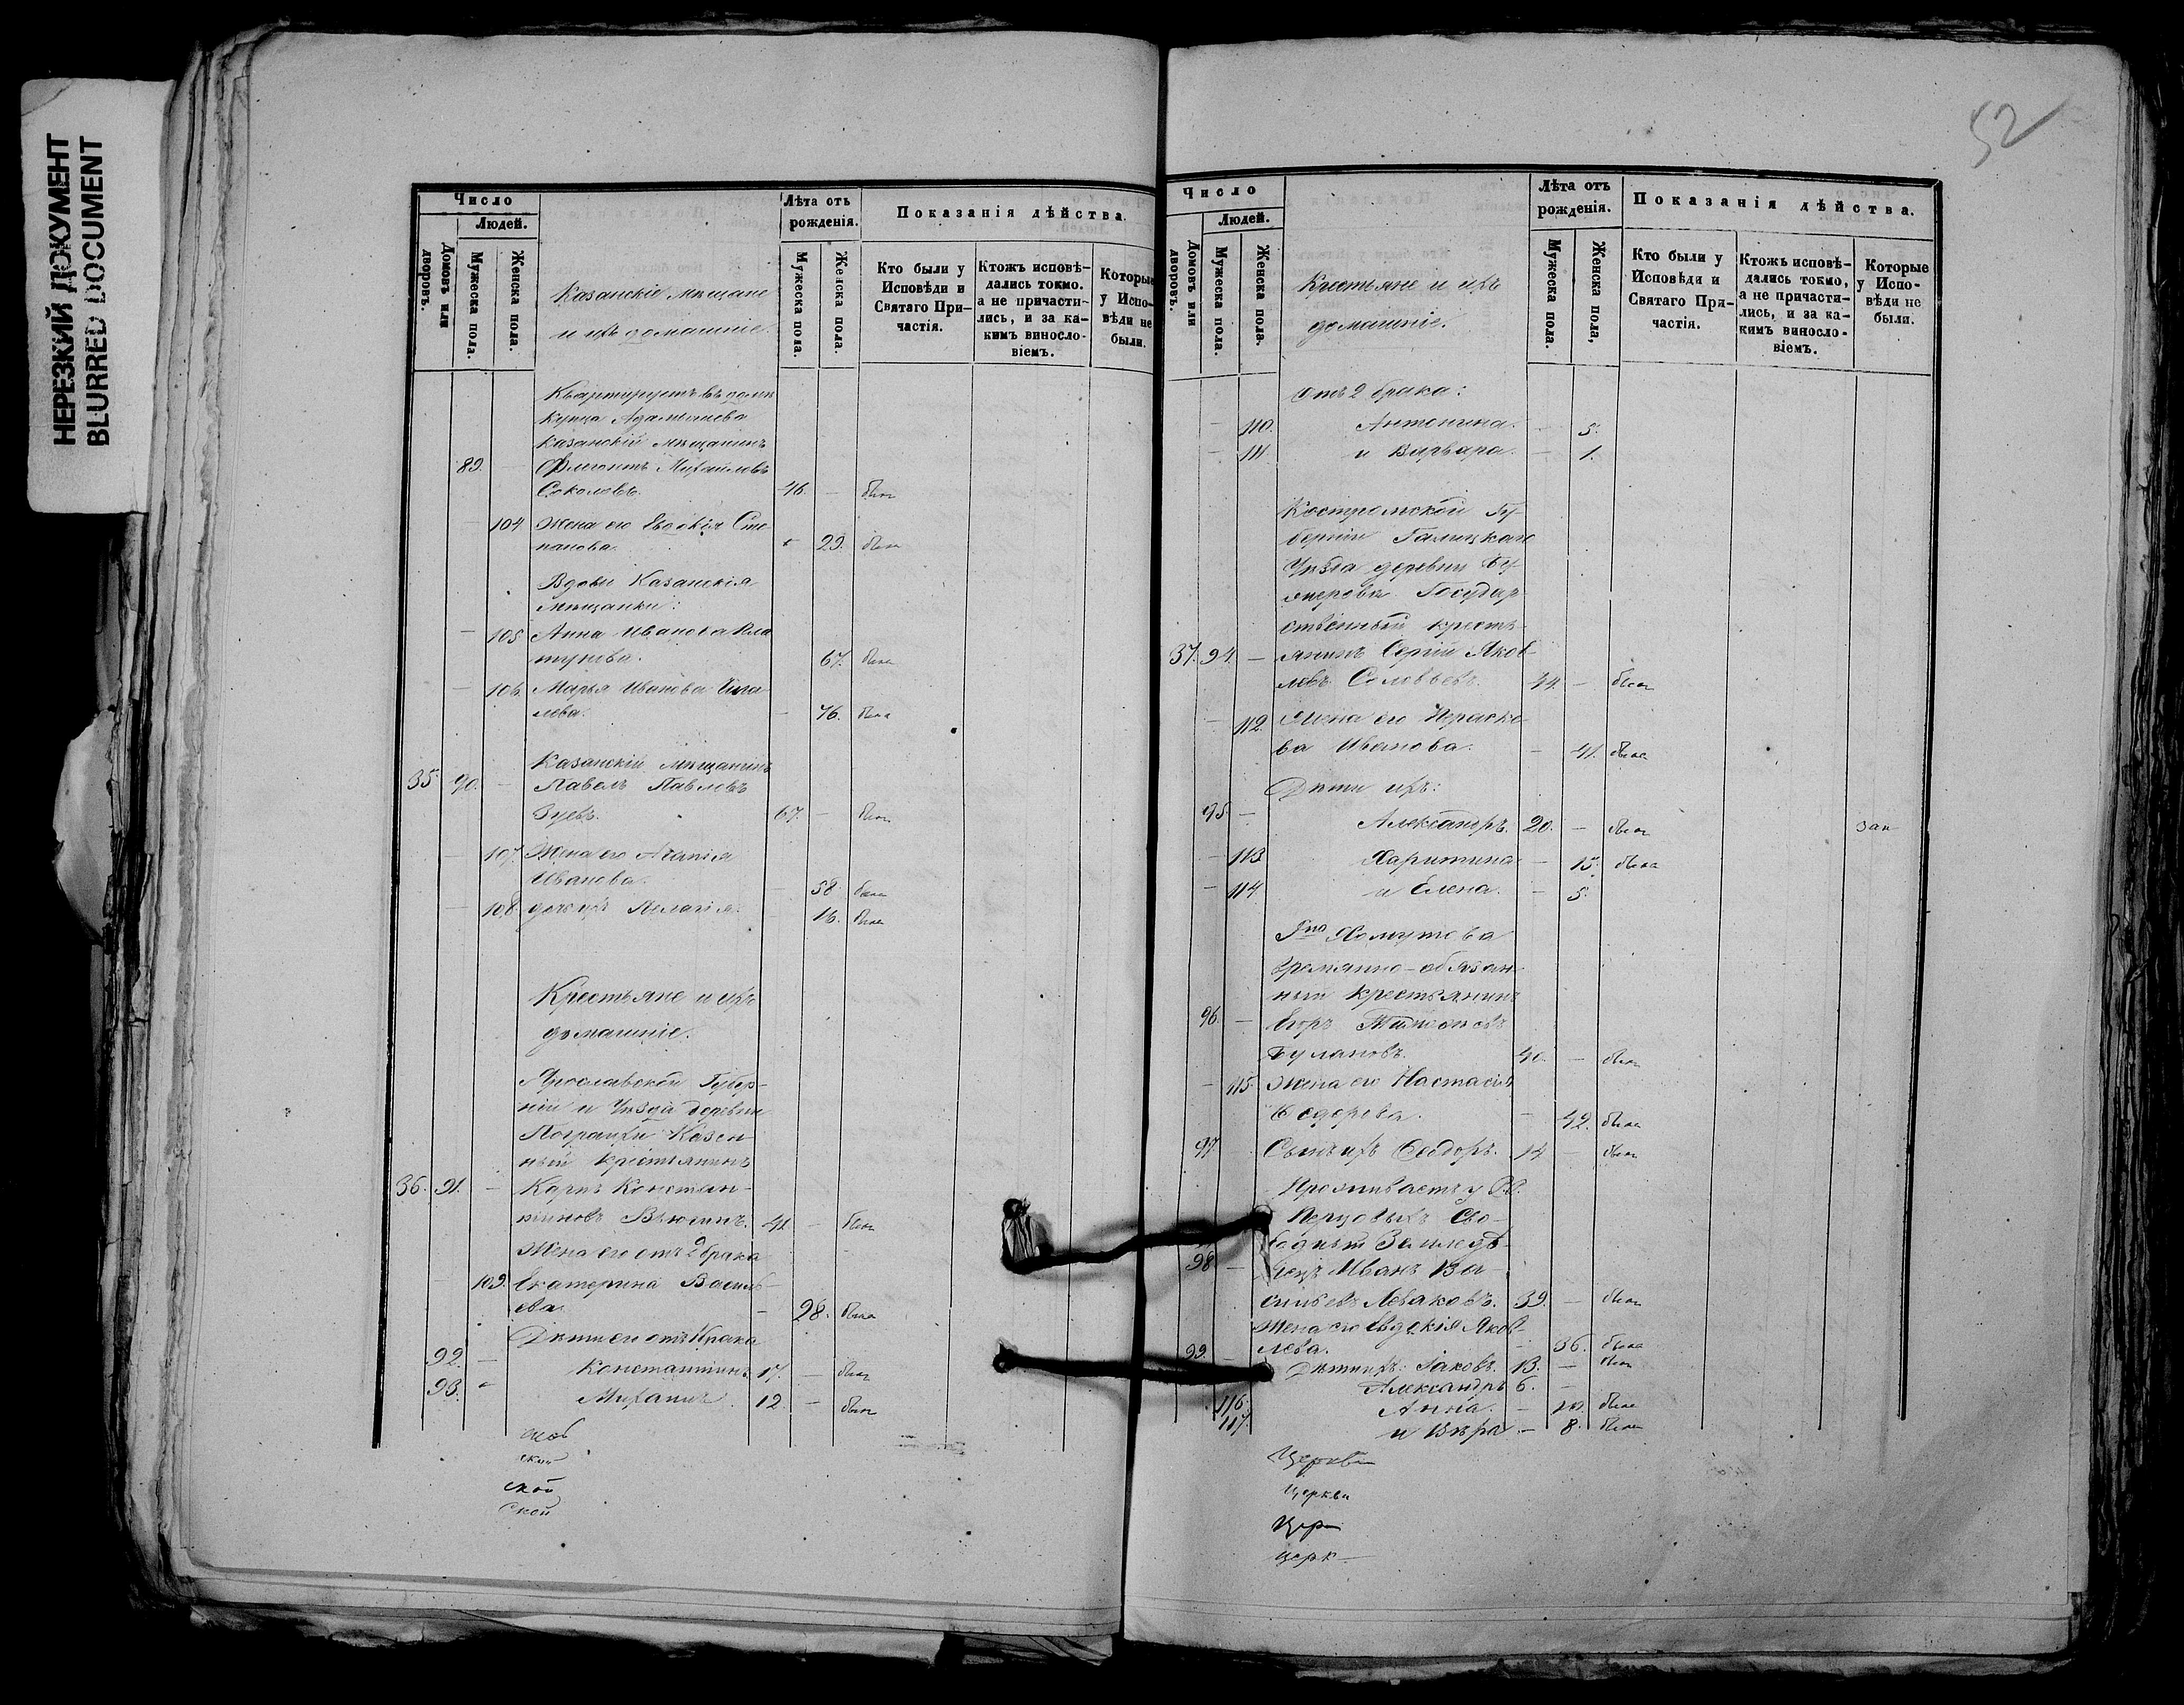 НЕРЕЗКИЙ ДОКУМЕНТ
BLURRED DOCUMENT
Число
Людей.
Домовъ или дворовъ.
Мужеска пола.
Женска пола.
Казанскіе мѣщане
и ихъ домашніе.
Лѣта отъ
рожденія.
Мужеска пола.
Женска пола.
Показанія дѣйства.
Кто были у
Исповѣди и
Святаго При-
частія.
Ктожъ исповѣ-
дались токмо.
а не причасти-
лись, и за ка-
кимъ винесло-
віемъ.
Которые
у Испо-
вѣди не
были.
Квартируетъ въ домѣ
купца
Казанскій мѣщанинъ
89. – Флегонтъ Михаиловъ
Соколовъ. 46. – былъ
– 104 Жена его Евдокія Сте-
панова. 29. была
Вдовы Казанскія
мѣщанки:
– 105 Анна Иванова
67. была
– 106. Марья Иванова
– 76. была
Казанскій мѣщанинъ
35 90. – Павелъ Павловъ
Зуевъ. 67. – былъ
– 107. Жена его Агапія
Иванова. – 58. была
– 108. дочь ихъ Пелагія. 16. была
Крестьяне и ихъ
домашніе.
Ярославской Губер-
ніи и Уѣзда деревни
Казен-
ный крестьянинъ
36. 91. – Карпъ Констан-
тиновъ 41. – былъ
Жена его отъ 2 брака
109. Екатерина Василь-
ева. – 28. была
Дѣти его отъ 1 брака
92. – Константинъ 17. – былъ
93. Михаилъ. 12. – былъ
ской
ской
ской
52
Число
Людей.
Домовъ или дворовъ.
Мужеска пола.
Женска пола.
Крестьяне и ихъ
домашніе.
Лѣта отъ
рожденія.
Мужеска пола.
Женска пола,
Показанія дѣйства.
Кто были у
Исповѣди и
Святаго При-
частія.
Ктожъ исповѣ-
дались токмо,
а не причасти-
лись, и за ка-
кимъ винесло-
віемъ.
Которые
у Испо-
вѣди не
были.
отъ 2 брака:
– 110. Антонина. – 5.
– 111. и Варвара. – 1.
Костромской Гу-
берніи Галицкаго
Уѣзда деревни
Государ-
ственный кресть-
37. 94. – янинъ Сергій Яков-
левъ Соловьевъ. 44. – былъ
– 112. Жена его Параске-
ва Иванова. – 41. была
Дѣти ихъ:
95. – Александръ. 20. – былъ зап
– 113 Харитина – 15. была
– 114 и Елена. – 5.
Гна Хомутова
временно-обязан-
ный крестьянинъ
96. – Егоръ
Булановъ. 40. – былъ
– 115. Жена его Настасія
Ѳедорова. – 42. была
97. Сынъ ихъ Ѳеодоръ. 14 – былъ
Проживаетъ у
Перцовыхъ Сво-
бодный Землед-
98 – Иванъ Ва-
сильевъ 39. – былъ
Жена его Евдокія Яков-
лева. – 36. была
99. – Дѣти ихъ: Іаковъ. 13. – былъ
Александръ 6. –
116. Анна. – была
117. и Вѣра. – 8. была
Церкви
Церкви
Цер
церк